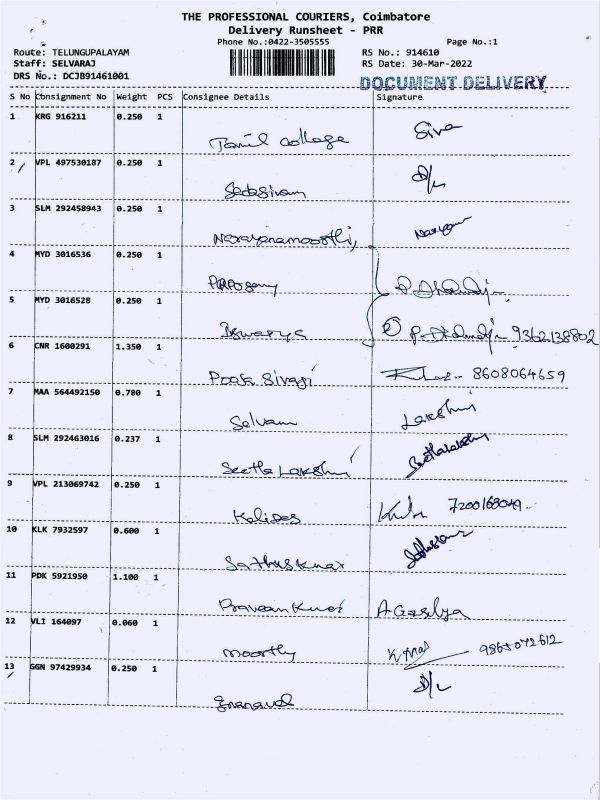 THE PROFESSIONAL COURIERS, Coimbatore
Delivery Runsheet - PRR
Phone No.:0422-3505555 Page No.:1
Route: TELUNGUPALAYAM RS No.: 914610
Staff: SELVARAJ RS Date: 30-Mar-2022
DRS No.: DCJB91461001 DOCUMENT DELIVERY
S No Consignment No Weight PCS Consignee Details Signature
1 KRG 916211 0.250 1
Tamil College Siva
2 VPL 497530187 0.250 1
Sadasivam D/L
3 SLM 292458943 0.250 1
Narayanamoorthi,
4 MYD 3016536 0.250 1
5 MYD 3016528 0.250 1
Iswarya 9362138802
6 CNR 1600291 1.350 1
Pooja Sivaji 8608064659
7 MAA 564492150 0.780 1
Selvam Lakshmi
8 SLM 292463016 0.237 1
Seetha Lakshmi Seethalakshmi
9 VPL 213069742 0.250 1
Kalidas
10 KLK 7932597 0.600 1
Sathiskumar
11 PDK 5921950 1.100 1
Praveen Kumar
12 VLI 164097 0.060 1
Moorthy
13 GGN 97429934 0.250 1
Gnanavel D/L